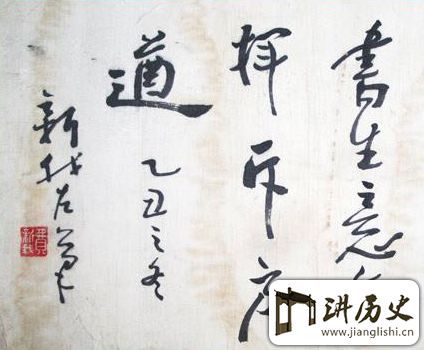 書生意气
揮斥方
遒
乙丑之冬
新我左筆
費新我
讲历史
www.jianglishi.cn